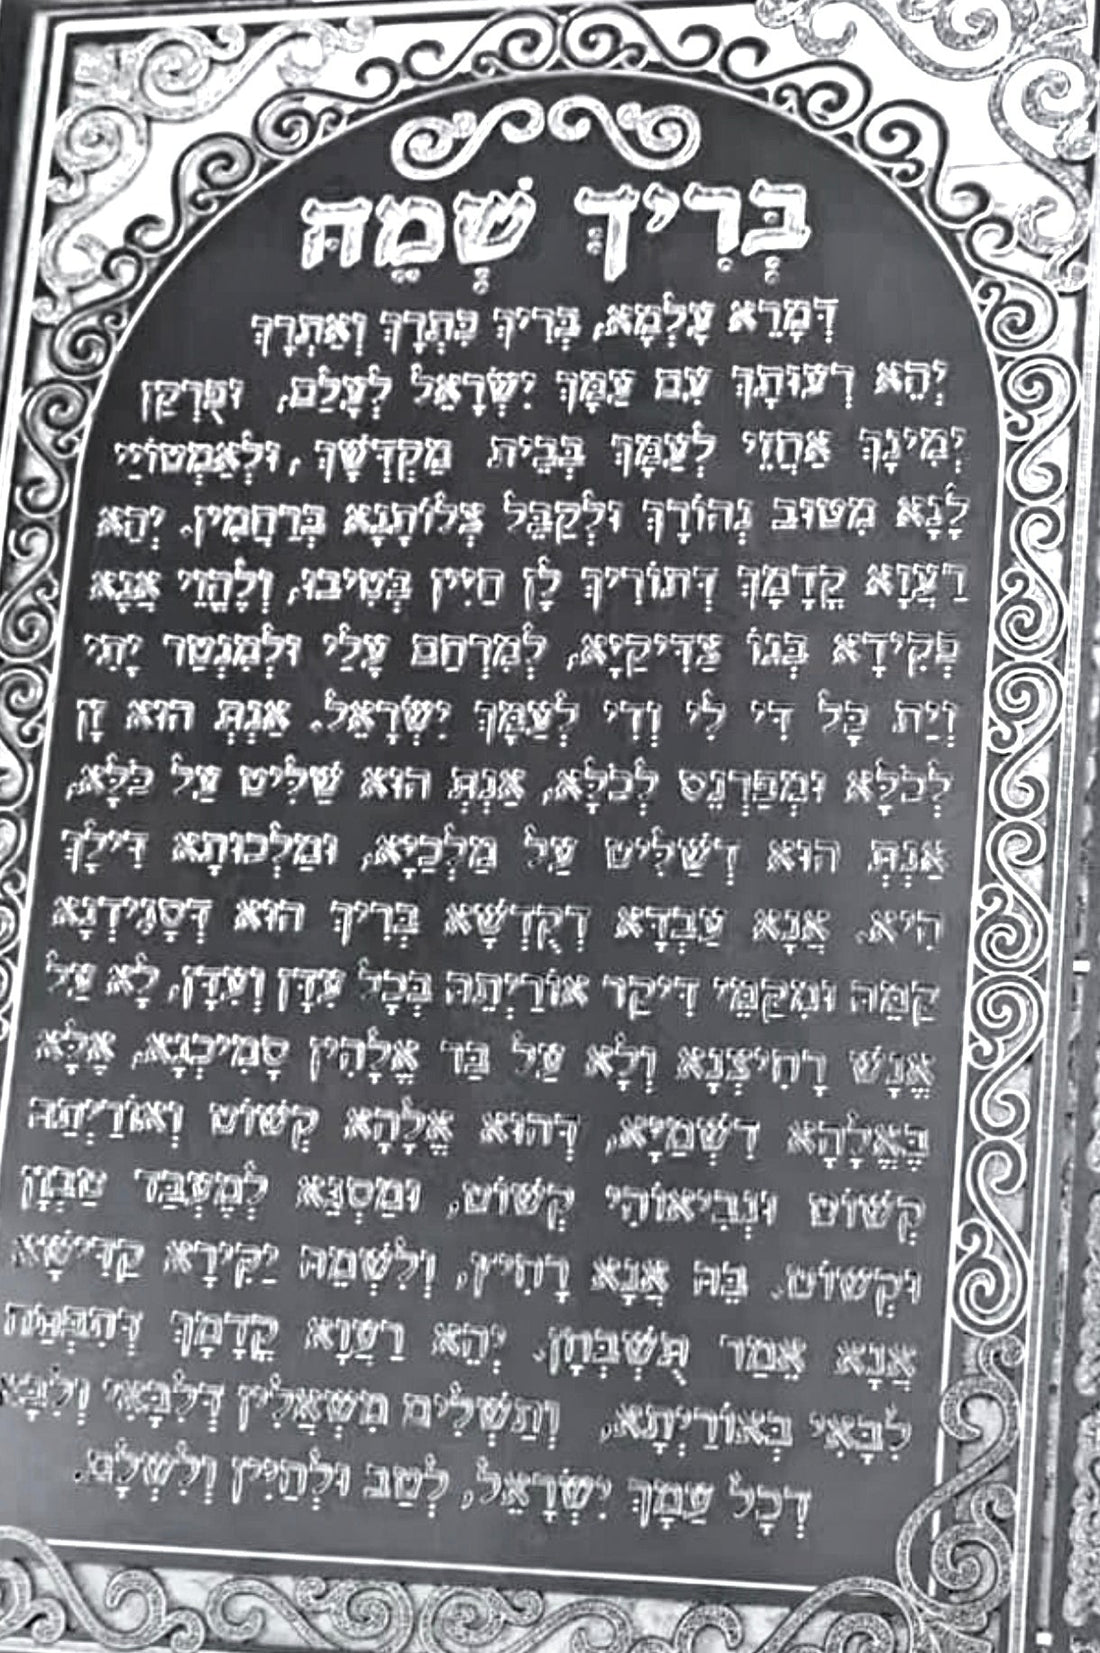 בְּרִיךְ שְׁמֵהּ
דְּמָרֵא עָלְמָא, בְּרִיךְ כִּתְרָךְ וְאַתְרָךְ
יְהֵא רְעוּתָךְ עִם עַמָּךְ יִשְׂרָאֵל לְעָלַם, וּפֻרְקַן
יְמִינָךְ אַחֲזֵי לְעַמָּךְ בְּבֵית מַקְדְּשָׁךְ, וּלְאַמְטוֹיֵי
לָנָא מִטּוּב נְהוֹרָךְ וּלְקַבֵּל צְלוֹתָנָא בְּרַחֲמִין. יְהֵא
רַעֲוָא קֳדָמָךְ דְּתוֹרִיךְ לָן חַיִּין בְּטִיבוּ, וְלֶהֱוֵי אֲנָא
פְקִידָא בְּגוֹ צַדִּיקַיָּא, לְמִרְחַם עָלַי וּלְמִנְטַר יָתִי
וְיַת כָּל דִּי לִי וְדִי לְעַמָּךְ יִשְׂרָאֵל. אַנְתְּ הוּא זָן
לְכֹלָּא וּמְפַרְנֵס לְכֹלָּא, אַנְתְּ הוּא שַׁלִּיט עַל כֹּלָּא,
אַנְתְּ הוּא דְשַׁלִּיט עַל מַלְכַיָּא, וּמַלְכוּתָא דִּילָךְ
הִיא. אֲנָא עַבְדָּא דְקֻדְשָׁא בְּרִיךְ הוּא דְּסָגִידְנָא
קַמֵּהּ וּמִקַּמֵּי דִּיקַר אוֹרַיְתֵהּ בְּכָל עִדָּן וְעִדָּן, לָא עַל
אֱנָשׁ רָחִיצְנָא וְלָא עַל בַּר אֱלָהִין סָמִיכְנָא, אֶלָּא
בֶּאֱלָהָא דִשְׁמַיָּא, דְּהוּא אֱלָהָא קְשׁוֹט וְאוֹרַיְתֵהּ
קְשׁוֹט וּנְבִיאוֹהִי קְשׁוֹט, וּמַסְגֵּא לְמֶעְבַּד טַבְוָן
וּקְשׁוֹט. בֵּהּ אֲנָא רָחִיץ, וְלִשְׁמֵהּ יַקִּירָא קַדִּישָׁא
אֲנָא אֵמַר תֻּשְׁבְּחָן. יְהֵא רַעֲוָא קֳדָמָךְ דְּתִפְתַּח
לִבָּאִי בְּאוֹרַיְתָא, וְתַשְׁלִים מִשְׁאֲלִין דְּלִבָּאִי וְלִבָּא
דְכָל עַמָּךְ יִשְׂרָאֵל, לְטַב וּלְחַיִּין וְלִשְׁלָם.